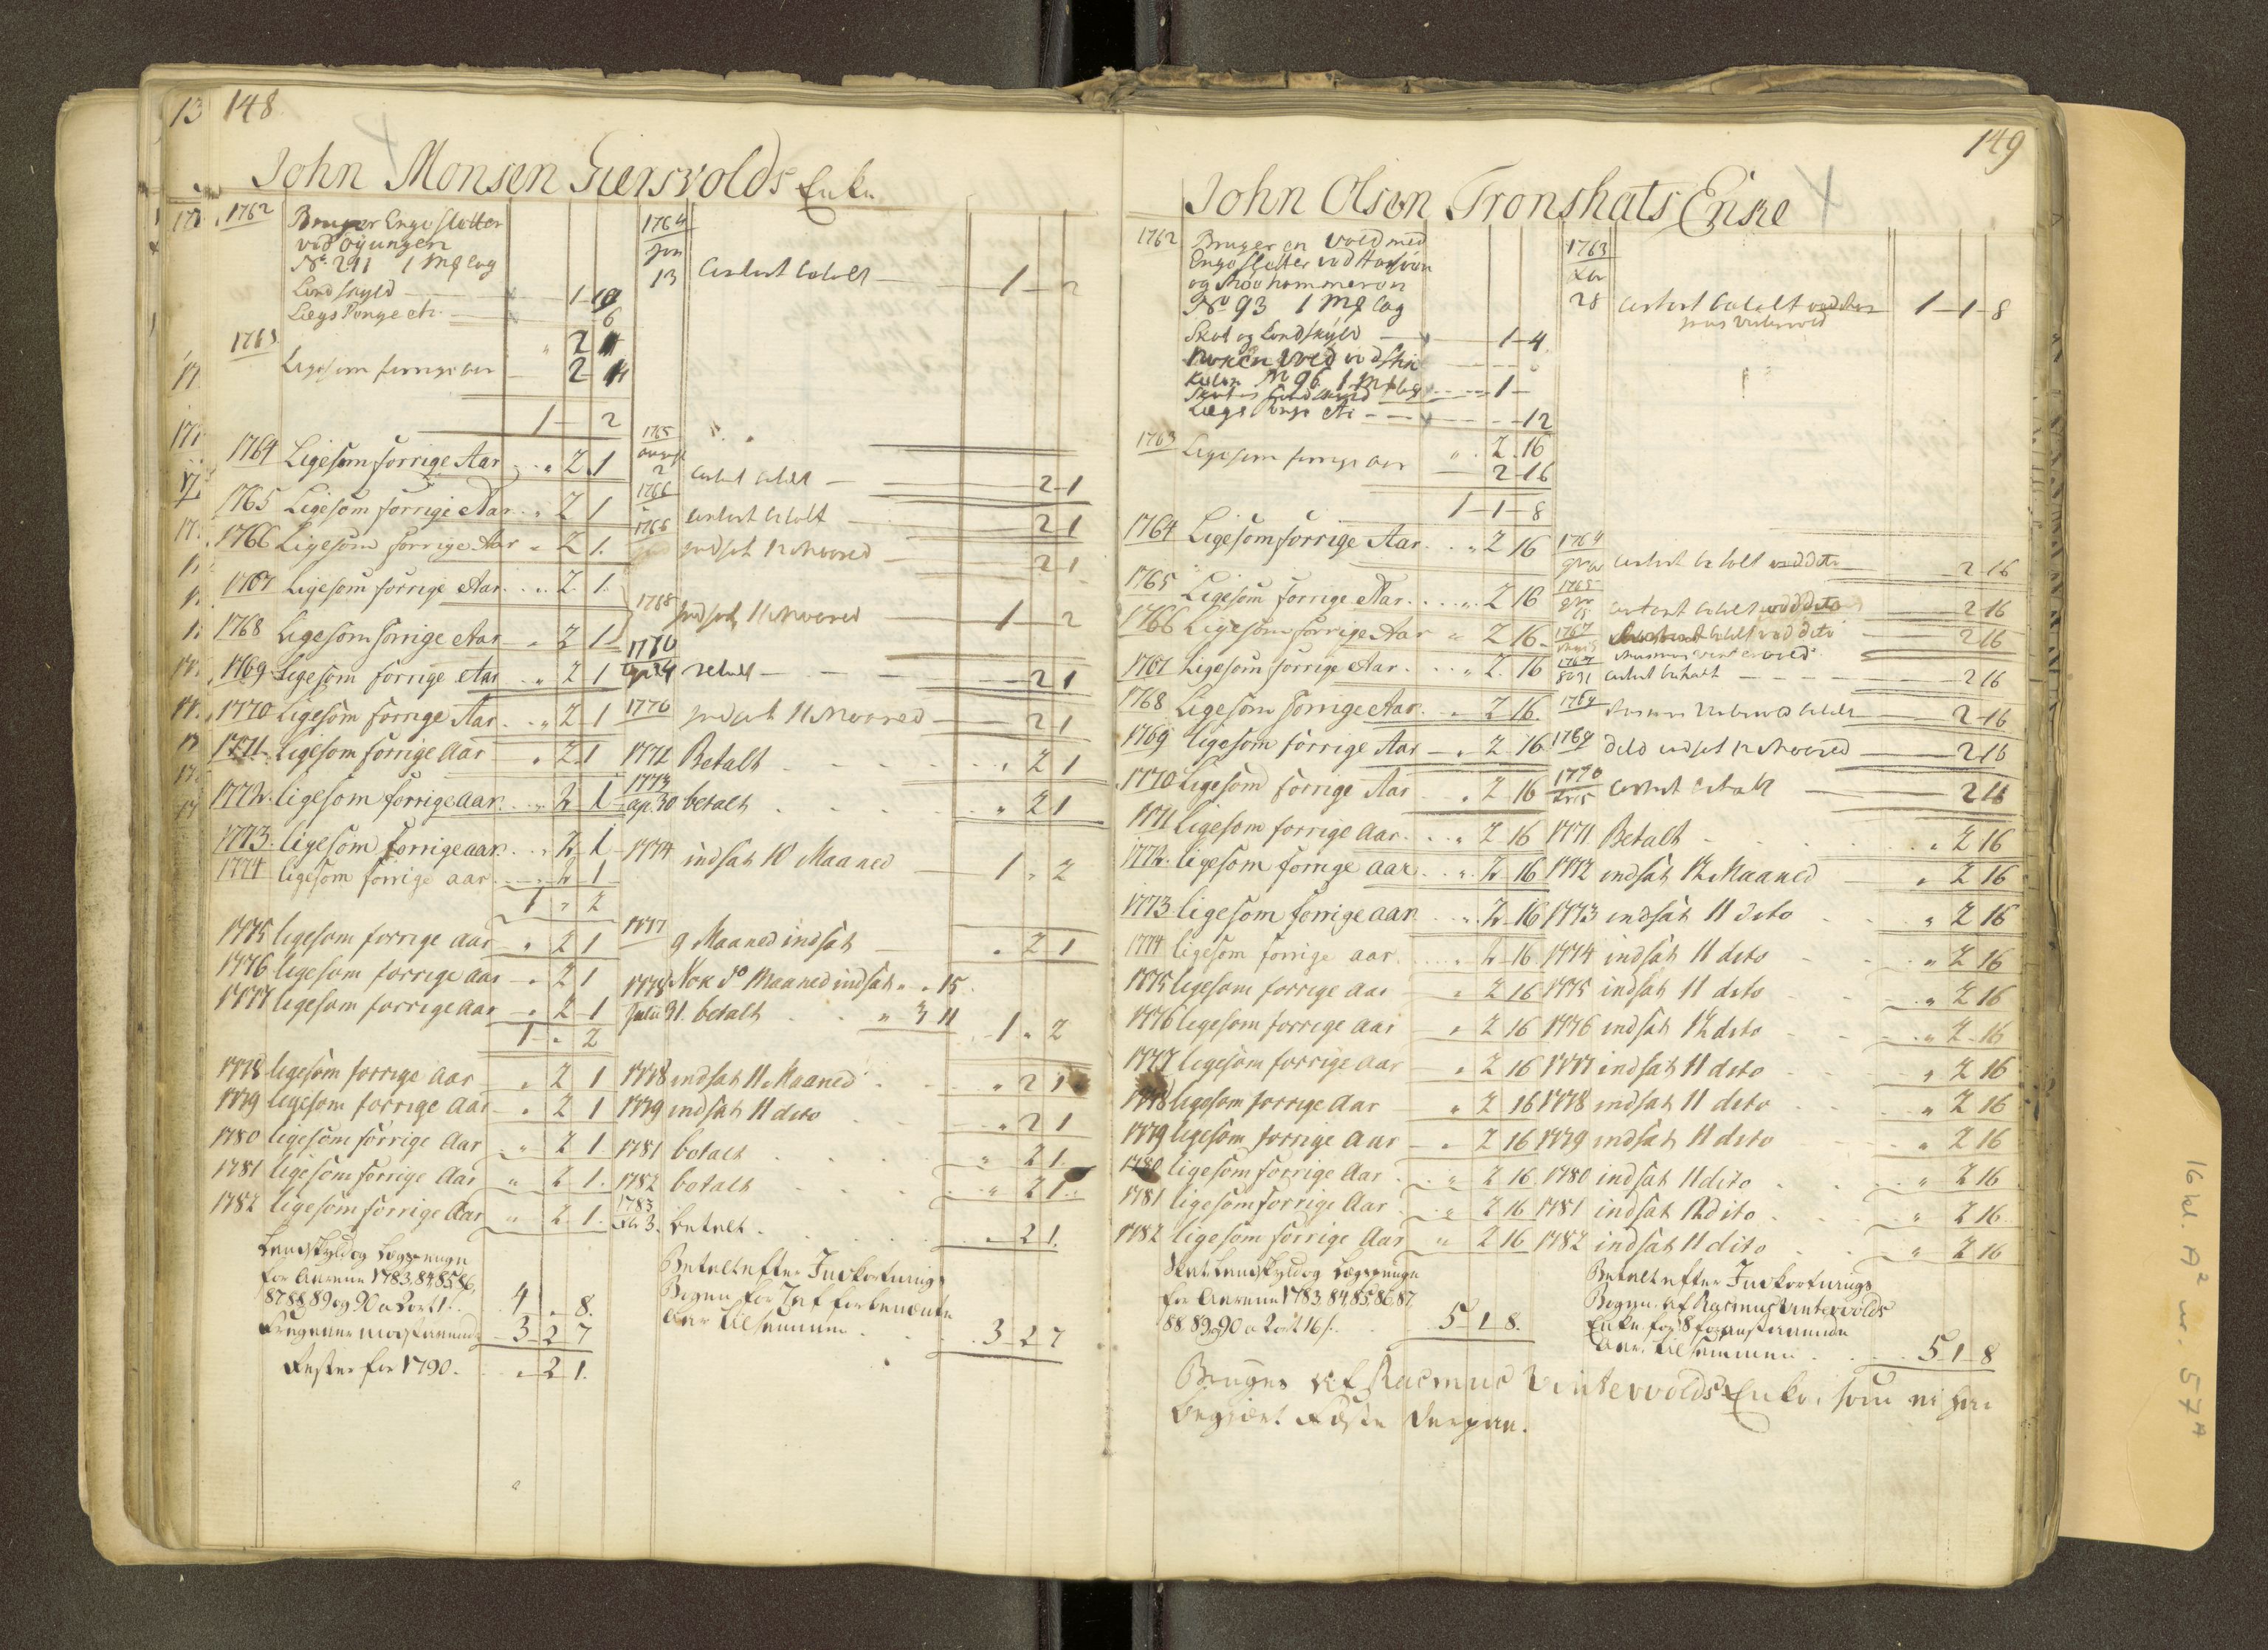 13 148
John Monsen Giersvolds Enke
1762 Bruger Engeslotter
ved öyungen
No. 211 1 Mg lag
Landskyld 1 19
Lægs Penge etc. 6
1763 " 2 1
Ligesom forrige aar 2 1
1 - 2
1764 Ligesom forrige Aar " 2 1
1765 Ligesom forrige Aar " 2 1
1766 Ligesom forrige Aar " 2 1.
1767 Ligesom forrige Aar " 2 1.
1768 Ligesom forrige Aar " 2 1
1769 Ligesom forrige Aar " 2 1
1770 Ligesom forrige Aar " 2 1
1771 ligesom forrige Aar " 2 1
1772. ligesom forrige aar. " 2 1
1773. ligesom forrige aar. " 2 1
1774 ligesom forrige aar. " 2 1
1 " 2
1775 ligesom forrige aar " 2 1
1776 ligesom forrige aar " 2 1
1777 ligesom forrige aar " 2 1
1 " 2
1778 ligesom forrige aar " 2 1
1779 ligesom forrige aar " 2 1
1780 ligesom forrige Aar " 2 1
1781 ligesom forrige Aar " 2 1.
1782 ligesom forrige Aar " 2 1.
Landskyld og Lægspenge
for Aarene 1783, 84, 85, 86,
87, 88, 89 og 90 a 2 ort 1 s. 4 " 8.
3 2 7
Rester for 1790. " 2 1.
1764
Jan
13 Contant betalt 1 - 2
1765
august
2 Contant betalt 2 1
1766 Contant betalt 2 1
1768 indsat 12 Maaned 2 1
1768 indsat 11 Maaned 1 - 2
1770
24 betalt 2 1
1770 indsat 11 Maaned 2 1
1772 Betalt " 2 1
1773
ap. 30 betalt " 2 1
1774 indsat 10 Maaned 1 " 2
1777 9 Maaned indsat " 2 1
1778 Nok do Maaned indsat " " 15.
Julii 31. betalt " 3 11 1 " 2
1778 indsat 11 Maaned " 2 1
1779 indsat 11 dito " 2 1
1781 betalt " 2 1.
1782 betalt " 2 1.
1783
3. betalt. " 2 1.
Betalt efter Indkortnings
Bogen for forbenævnte
Aar tilsammen 3 2 7
149
John Olsen Tronshats Enke
1762 Bruger en Voldmed
Engeslotter ved
og
No 93 1 Mg lag
Skat og Landskyld 1 - 4
nok en Vold ved
No 96 1 Mg lag
Skat og Landskyld 1 -
Lægs Penge etc 12
1763 " 2 16
Ligesom forrige aar 2 16
1 - 1 - 8
1764 Ligesom forrige Aar " 2 16
1765 Ligesom forrige Aar " 2 16
1766 Ligesom forrige Aar " 2 16
1767 Ligesom forrige Aar " 2 16
1768 Ligesom forrige Aar " 2 16
1769 ligesom forrige Aar " 2 16
1770 Ligesom forrige Aar " 2 16
1771 ligesom forrige Aar " 2 16
1772. ligesom forrige aar " 2 16
1773 ligesom forrige aar. " 2 16
1774 ligesom forrige aar. " 2 16
1775 ligesom forrige aar " 2 16
1776 ligesom forrige aar " 2 16
1777 ligesom forrige aar " 2 16
1778 ligesom forrige aar " 2 16
1779 ligesom forrige aar " 2 16
1780 ligesom forrige Aar " 2 16
1781 ligesom forrige Aar " 2 16
1782 ligesom forrige Aar " 2 16
Skat Landskyld og Lægspenge
for Aarene 1783, 84, 85, 86, 87,
88, 89, 90 a 2 ort 16 s. 5 1 8.
1763
28 Contant betalt 1 - 1 - 8
1764
Contant betalt ved dito 2 16
1765
Contant betalt ved dito 2 16
1767 betalt ved dito 2 16
1767 Contant betalt 2 16
betalt 2 16
1769 indsat 12 Maaned 2 16
1770
Contant betalt 2 16
1771 Betalt " 2 16
1772 indsat 12 Maaned " 2 16
1773 indsat 11 dito " 2 16
1774 indsat 11 dito " 2 16
1775 indsat 11 dito " 2 16
1776 indsat 12 dito " 2 16
1777 indsat 11 dito " 2 16
1778 indsat 11 dito " 2 16
1779 indsat 11 dito " 2 16
1780 indsat 11 dito " 2 16
1781 indsat 12 dito " 2 16
1782 indsat 11 dito " 2 16
Betalt efter Indkortnings
Bogen af Rasmus Vintervolds
Enke for 8 foranstaaende
Aar, tilsammen 5 1 8
Bruges af Rasmus Vintervolds Enke, som ei har
begiært Fæste derpaa.
16 kl. A² nr. 57A